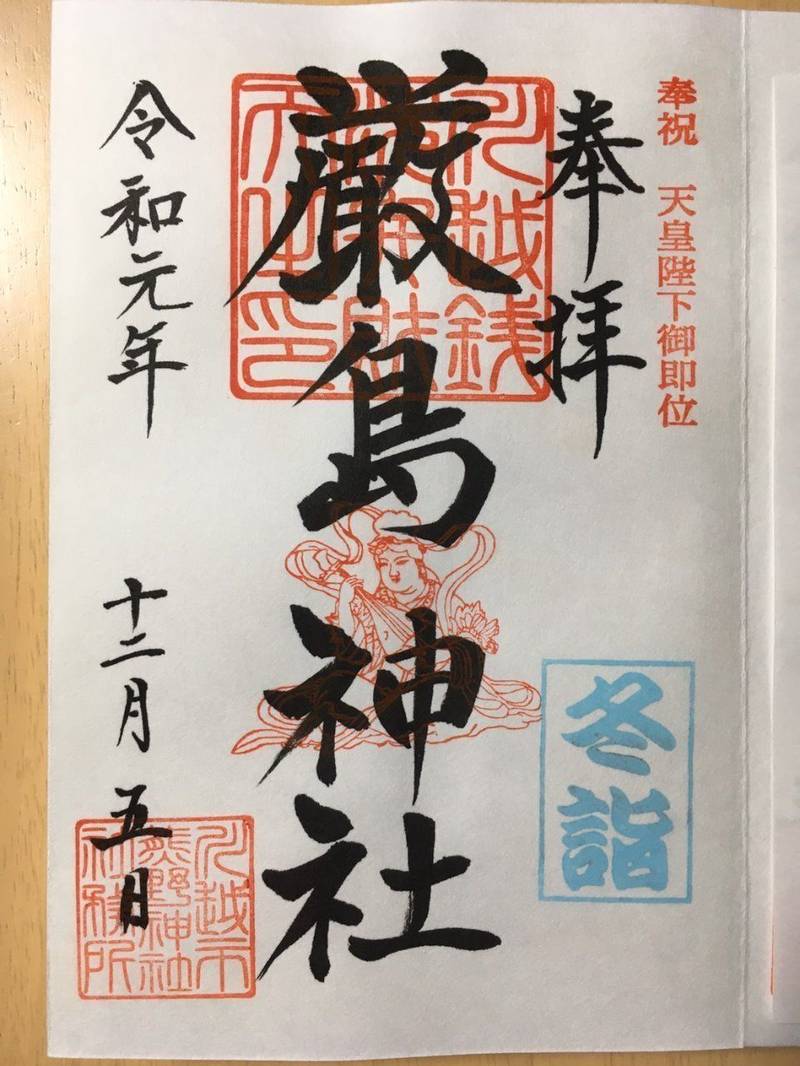 奉祝　天皇陛下御即位
奉拝
厳島神社
川越銭
冬詣
令和元年
十二月五日
川越市
熊野神社
社務所